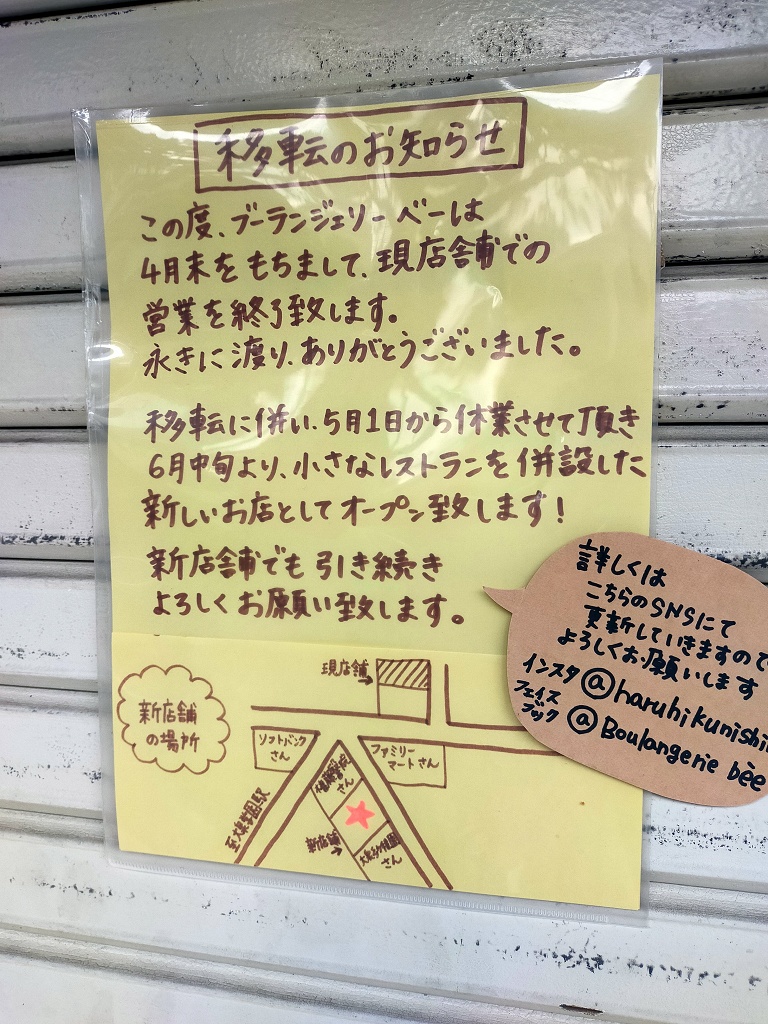 移転のお知らせ
この度、ブーランジェリー ベーは
4月末をもちまして、現店舗での
営業を終了致します。
永きに渡り、ありがとうございました。
移転に併い、5月1日から休業させて頂き
6月中旬より、小さなレストランを併設した
新しいお店としてオープン致します!
新店舗でも引き続き
よろしくお願い致します。
詳しくは
こちらのSNSにて
更新していきますので
よろしくお願いします
インスタ @haruhikunishi
フェイスブック @Boulangerie bèe
現店舗
新店舗
の場所
ソフトバンク
さん
ファミリー
マートさん
さん
新店舗
さん
至大泉学園駅